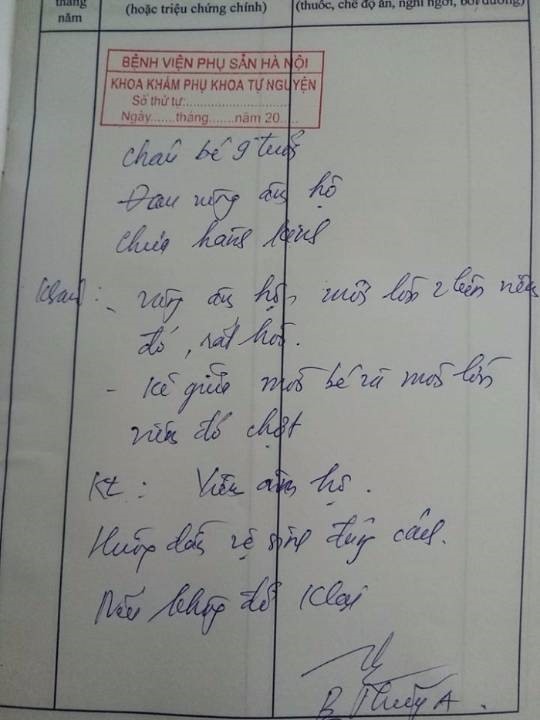 tháng
năm
(hoặc triệu chứng chính)
(thuốc, chế độ ăn, nghỉ ngơi, bồi dưỡng)
BỆNH VIỆN PHỤ SẢN HÀ NỘI
KHOA KHÁM PHỤ KHOA TỰ NGUYỆN
Số thứ tự:
Ngày.......tháng.......năm 20.....
cháu bé 9 tuổi
Đau vùng âm hộ
chưa hành kinh
Khám: - vùng âm hộ, môi lớn 2 bên viêm
đỏ,
- kẽ giữa môi bé và môi lớn
viêm đỏ
KL: Viêm âm hộ.
Hướng dẫn vệ sinh đúng cách.
Nếu không đỡ K lại
B. Thủy A.